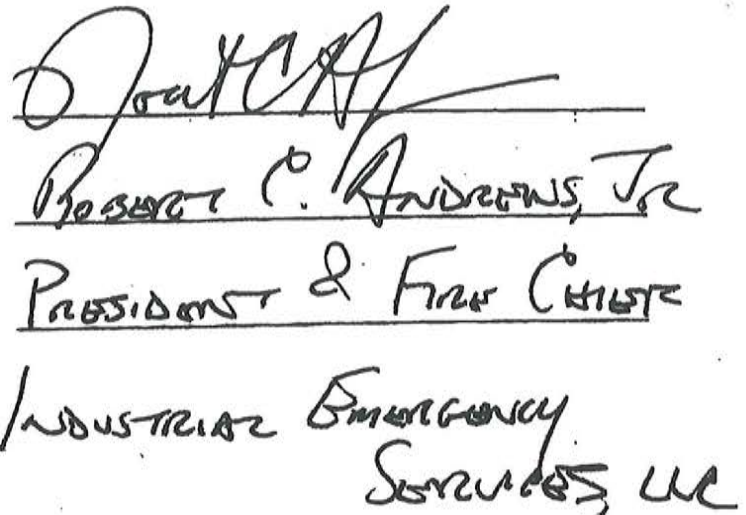 Robert C. Andrews, Jr
President & Fire Chief
Industrial Emergency
Services, LLC